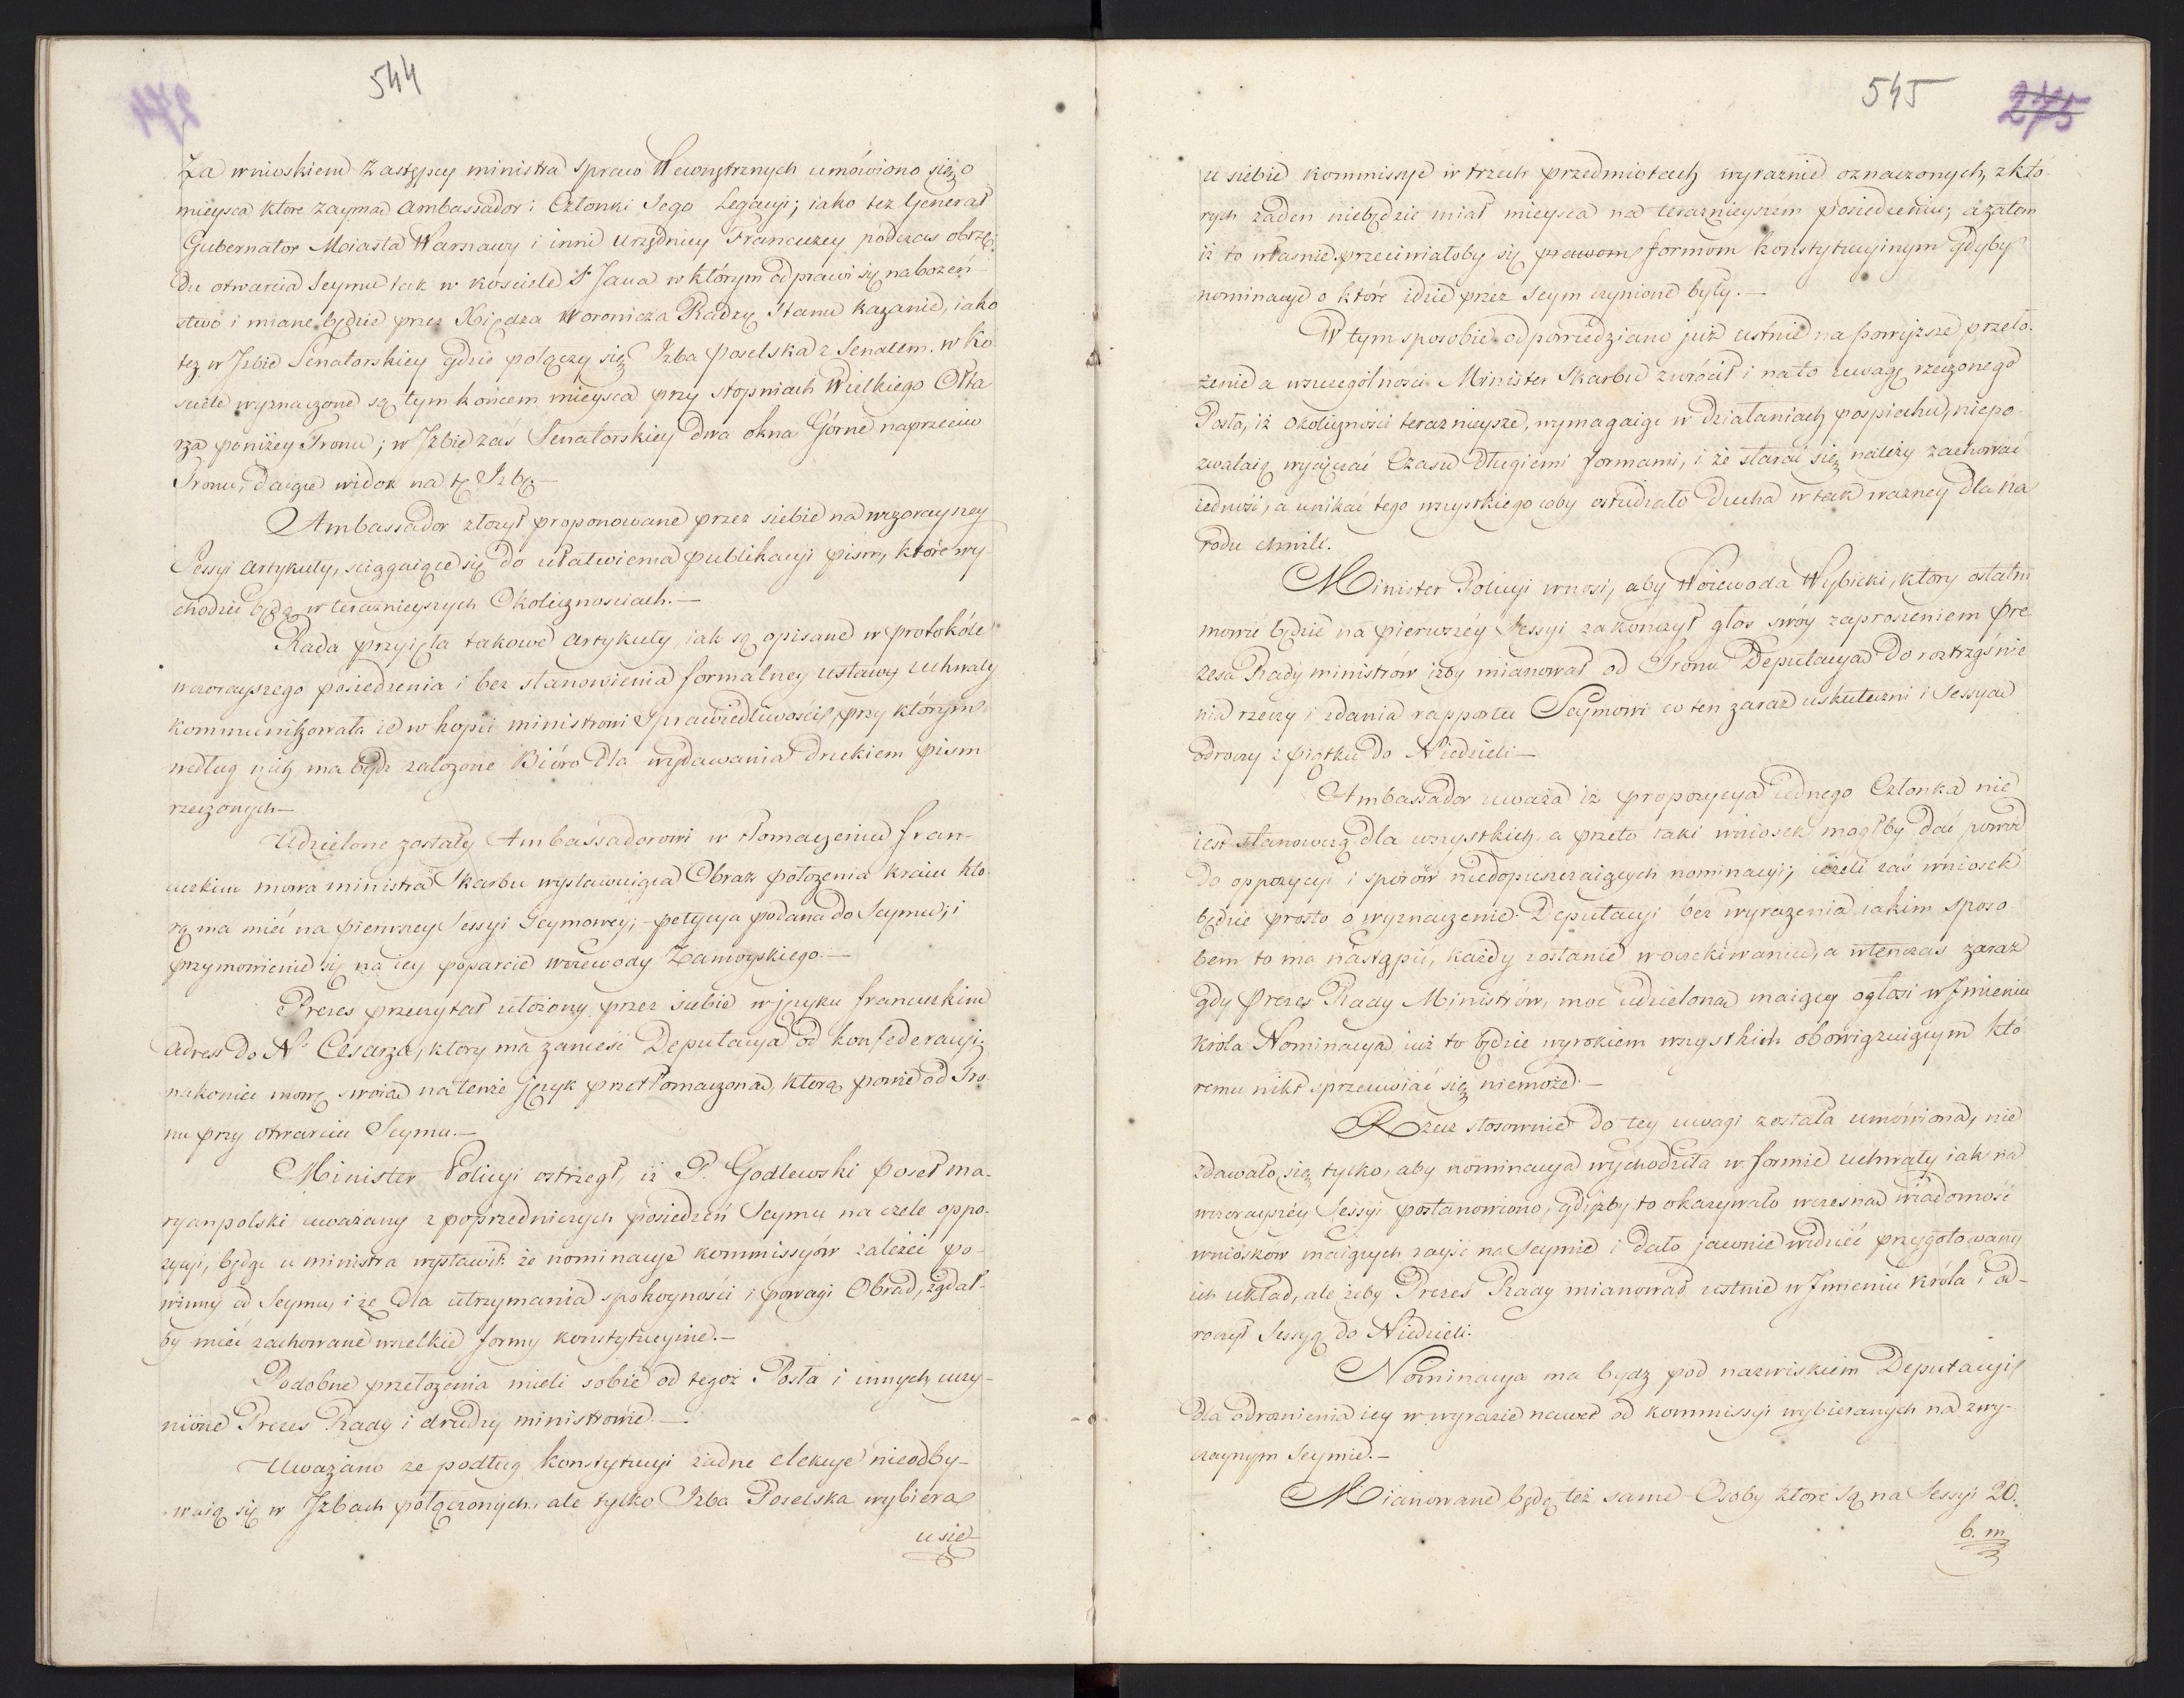 544
274
Za wnioskiem Zastępcy ministra Spraw Wewnętrznych umówiono się o
mieysca które zaymą Ambassador i Członki Jego Legacyi; iako też Generał
Gubernator Miasta Warszawy i inni Urzędnicy Francuzcy podczas obrzę-
du otwarcia Seymu tak w kościele S. Jana w którym odprawi się nabożeń-
stwo i miane będzie przez Xiędza Woronicza Radzcę Stanu kazanie, iako
też w Izbie Senatorskiey gdzie połączy się Izba poselska z Senatem. w Ko
ściele wyznaczone są tym końcem mieysca przy stopniach Wielkiego Ołta
rza poniżey Tronu; w Izbie zaś Senatorskiey dwa okna Górne naprzeciw
Tronu, daiące widok na tę Izbę.—
Ambassador złożył proponowane przez siebie na wczorayszey
Sessyi Artykuły, ściągaiące się do ułatwienia publikacyi pism, które wy-
chodzić będą w teraznieyszych Okolicznościach.—
Rada przyięła takowe Artykuły, iak są opisane w protokóle
wczorayszego posiedzenia i bez stanowienia formalney ustawy Uchwały
kommunikowała ie w kopii ministrowi Sprawiedliwości, przy którym
według nich ma bydź założone Biuro dla wydawania drukiem pism
rzeczonych—
Udzielone zostały Ambassadorowi w tłomaczeniu fran-
cuzkim mowa ministra Skarbu wystawuiąca Obraz położenia kraiu któ-
rą ma mieć na pierwszey Sessyi Seymowey; – petycya podana do Seymu; i
przymówienie się na iey poparcie woiewody Zamoyskiego.—
Prezes przeczytał ułożony przez siebie w języku francuzkim
Adress do N. Cesarza, który ma zanieść Deputacya od konfederacyi;
nakoniec mowę swoią na tenże język przetłomaczoną, którą powie od Tro
nu przy otwarciu Seymu.—
Minister Policyi ostrzegł, iż P. Godlewski Poseł ma-
ryanpolski uważany z poprzedniczych posiedzeń Seymu na czele oppo-
zycyi, będąc u ministra wystawił: że nominacye kommissyów zależeć po-
winny od Seymu, i że dla utrzymania spokoyności i powagi Obrad, żądał-
by mieć zachowane wszelkie formy konstytucyine.—
Podobne przełożenia mieli sobie od tegoż Posła i innych uczy-
nione Prezes Rady i drudzy ministrowie.—
Uważano że podług konstytucyi żadne elekcye nieodby-
waią się w Izbach połączonych, ale tylko Izba Poselska wybiera
u sie
545
275
u siebie kommissye w trzech przedmiotach wyraźnie oznaczonych, z któ-
rych żaden niebędzie miał mieysca na teraznieyszém posiedzeniu; a zatem
iż to właśnie sprzeciwiałoby się prawom formom konstytucyinym gdyby
nominacye o które idzie przez Seym czynione były.—
W tym sposobie odpowiedziano już ustnie na powyższe przeło-
żenie a w szczególności Minister Skarbu zwrócił i na to uwagę rzeczonego
Posła, iż okoliczności teraznieysze, wymagaiąc w działaniach pospiechu, niepo-
zwalaią wycieczać Czasu długiemi formami, i że starać się należy zachować
iedność, a unikać tego wszystkiego coby ostudzało ducha w tak ważney dla Na
rodu chwili.
Minister Policyi wnosi, aby Woiewoda Wybicki, który ostatni
mówić będzie na pierwszéy Sessyi zakończył głos swóy zaproszeniem pre
zesa Rady ministrów iżby mianował od Tronu Deputacyą do roztrząśnie
nia rzeczy i zdania rapportu Seymowi co ten zaraz uskuteczni i Sessyą
odroczy z piątku do Niedzieli—
Ambassador uważa iż propozycya iednego Członka nie
iest stanowczą dla wszystkich, a przeto taki wniosek mógłby dać powód
do oppozycyi i sporów niedopuszczaiących nominacyi; ieżeli zaś wniosek
będzie prosto o wyznaczenie Deputacyi bez wyrażenia iakim sposo-
bem to ma nastąpić, każdy zostanie w oczekiwaniu, a wtenczas zaraz
gdy Prezes Rady Ministrów, moc udzieloną maiący ogłosi w Imieniu
króla Nominacyą, już to będzie wyrokiem wszystkich obowiązuiącym któ
remu nikt sprzeciwiać się niemoże.—
Rzecz stosownie do tey uwagi została umówiona, nie
zdawało się tylko, aby nominacya wychodziła w formie uchwały iak na
wczorayszéy Sessyi postanowiono, gdyżby to okazywało wczesną wiadomość
wniosków maiących zayść na Seymie i dało jawnie widzieć przygotowany
ich układ, ale żeby Prezes Rady mianował ustnie w Imieniu króla i od-
roczył Sessyą do Niedzieli.
Nominacya ma bydź pod nazwiskiem Deputacyi
dla odróżnienia iey w wyrazie nawet od kommissyi wybieranych na zwy-
czaynym Seymie.—
Mianowane będą też same Osoby które są na Sessyi 20.
b. m